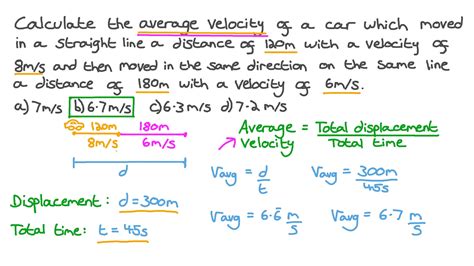 Calculate the average velocity of a car which moved
in a straight line a distance of 120m with a velocity of
8m/s and then moved in the same direction on the same line
a distance of 180m with a velocity of 6m/s.
a) 7m/s b) 6.7m/s c) 6.3m/s d) 7.2m/s
120m 180m
8m/s 6m/s
d
Average Velocity = Total displacement / Total time
Vavg = d/t Vavg = 300m/45s
Displacement: d = 300m
Vavg = 6.6̇ m/s Vavg = 6.7 m/s
Total time: t = 45s